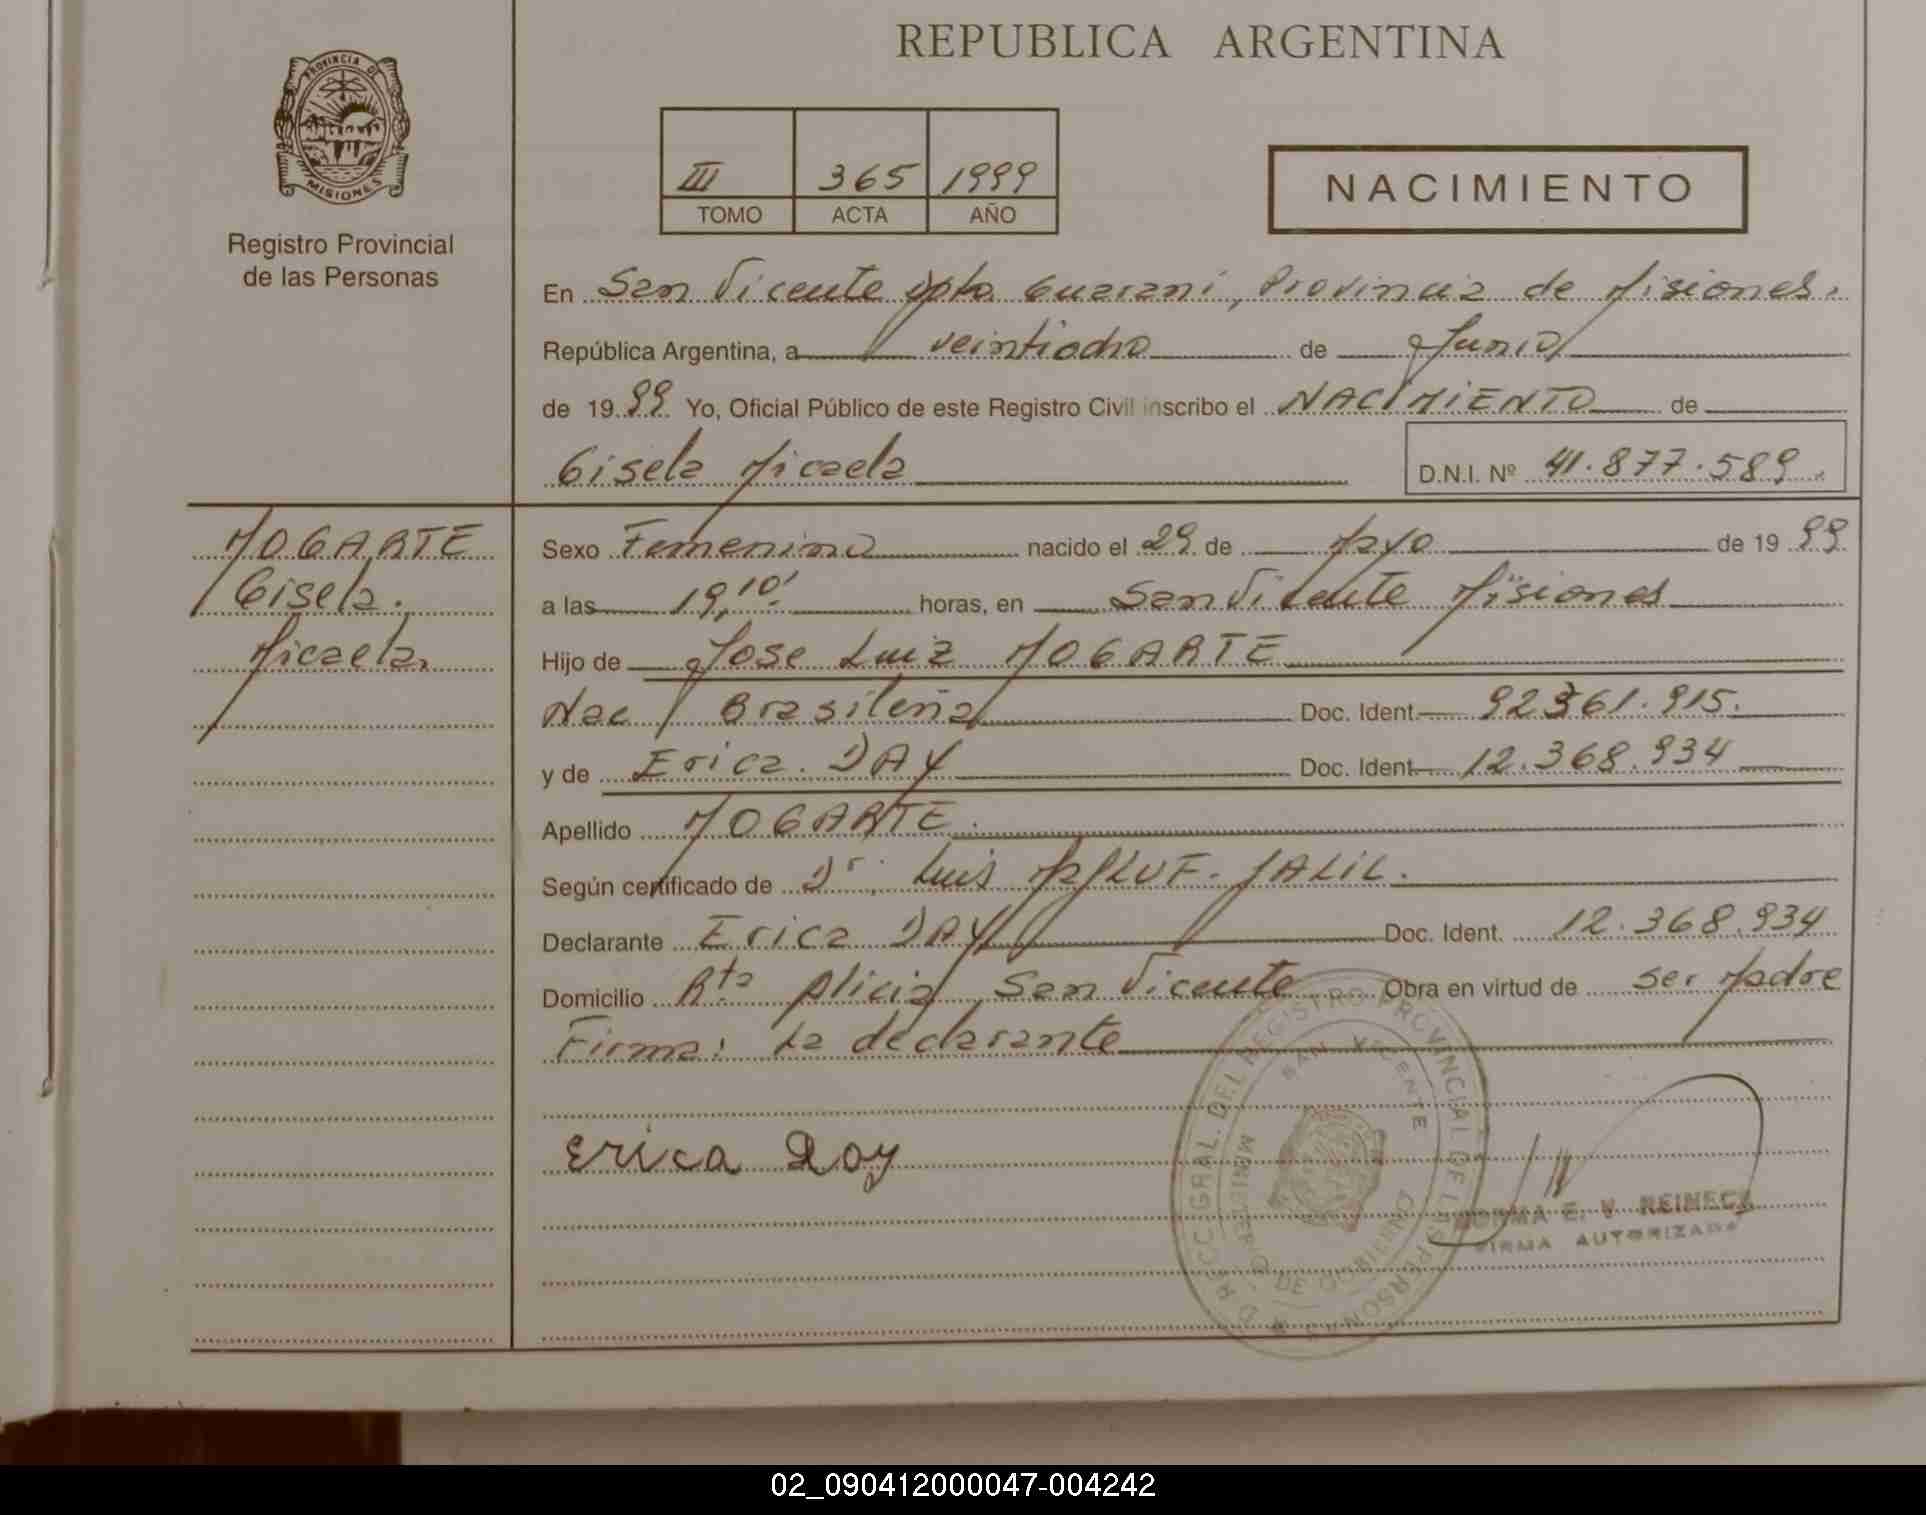 REPUBLICA ARGENTINA
PROVINCIA DE
MISIONES
Registro Provincial
de las Personas
III 365 1999
TOMO ACTA AÑO
NACIMIENTO
En San Vicente Dpto Guarani, Provincia de Misiones.
República Argentina, a veintiocho de Junio
de 1999 Yo, Oficial Público de este Registro Civil inscribo el NACIMIENTO de
Gisela Micaela D.N.I. Nº 41.877.589.
MOGARTE
Gisela.
Micaela.
Sexo Femenino nacido el 29 de Mayo de 1999
a las 19,10' horas, en San Vicente Misiones
Hijo de Jose Luiz MOGARTE
Nac Brasileña Doc. Ident. 92361.915.
y de Erica DAY Doc. Ident. 12.368.934
Apellido MOGARTE.
Según certificado de Dr. Luis JALIL.
Declarante Erica DAY Doc. Ident. 12.368.934
Domicilio Rta Alicia, San Vicente Obra en virtud de ser Madre
Firma: La declarante
Erica Day
DIRECC. GRAL. DEL REGISTRO PROVINCIAL DE LAS PERSONAS
SAN VICENTE
MINISTERIO DE GOBIERNO
NORMA E. V. REINECK
FIRMA AUTORIZADA
02_090412000047-004242